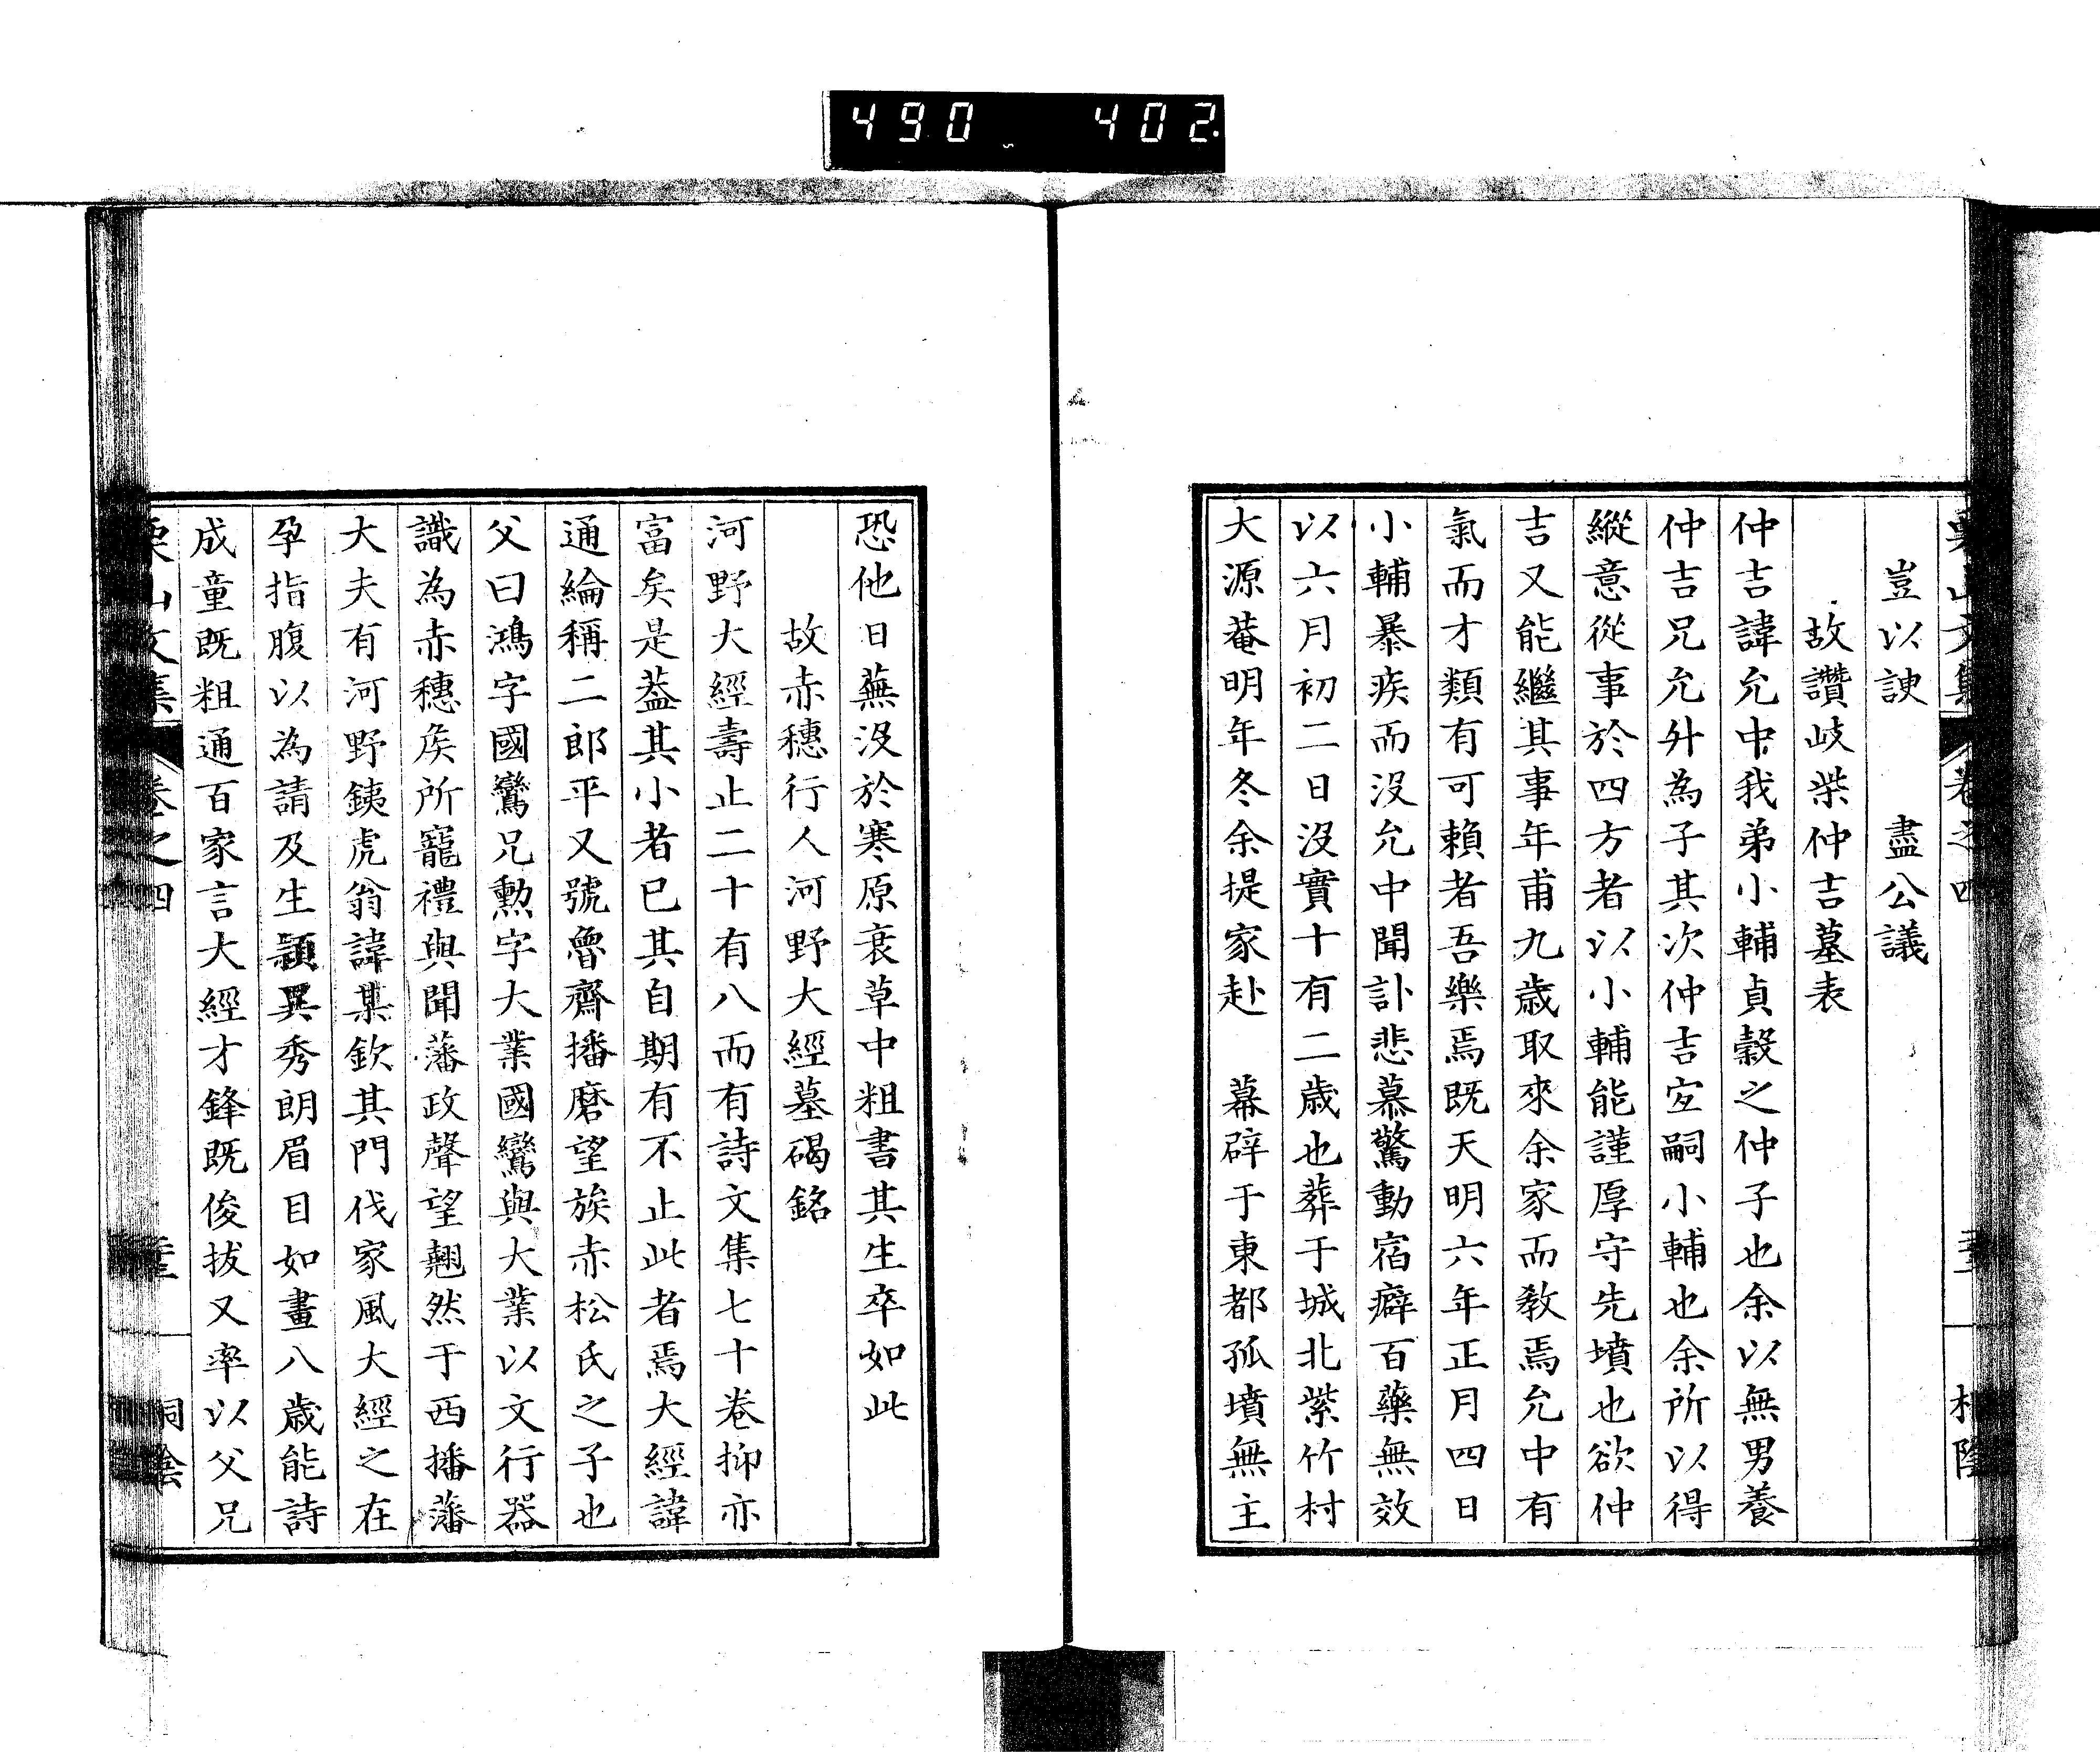 490 402
豈以諛　盡公議
故讚岐柴仲吉墓表
仲吉諱允中我弟小輔貞穀之仲子也余以無男養
仲吉兄允升為子其次仲吉宐嗣小輔也余所以得
縱意從事於四方者以小輔能謹厚守先墳也欲仲
吉又能繼其事年甫九歲取來余家而教焉允中有
氣而才類有可賴者吾樂焉既天明六年正月四日
小輔暴疾而沒允中聞訃悲慕驚動宿癖百藥無效
以六月初二日沒實十有二歲也葬于城北紫竹村
大源菴明年冬余提家赴　幕辟于東都孤墳無主
恐他日蕪沒於寒原衰草中粗書其生卒如此
故赤穗行人河野大經墓碣銘
河野大經壽止二十有八而有詩文集七十卷抑亦
富矣是葢其小者已其自期有不止此者焉大經諱
通綸稱二郎平又號魯齋播磨望族赤松氏之子也
父曰鴻字國鸞兄勲字大業國鸞與大業以文行器
識為赤穗矦所寵禮與聞藩政聲望翹然于西播藩
大夫有河野銕虎翁諱某欽其門伐家風大經之在
孕指腹以為請及生穎異秀朗眉目如畫八歲能詩
成童既粗通百家言大經才鋒既俊拔又率以父兄
栗山文集　卷之四